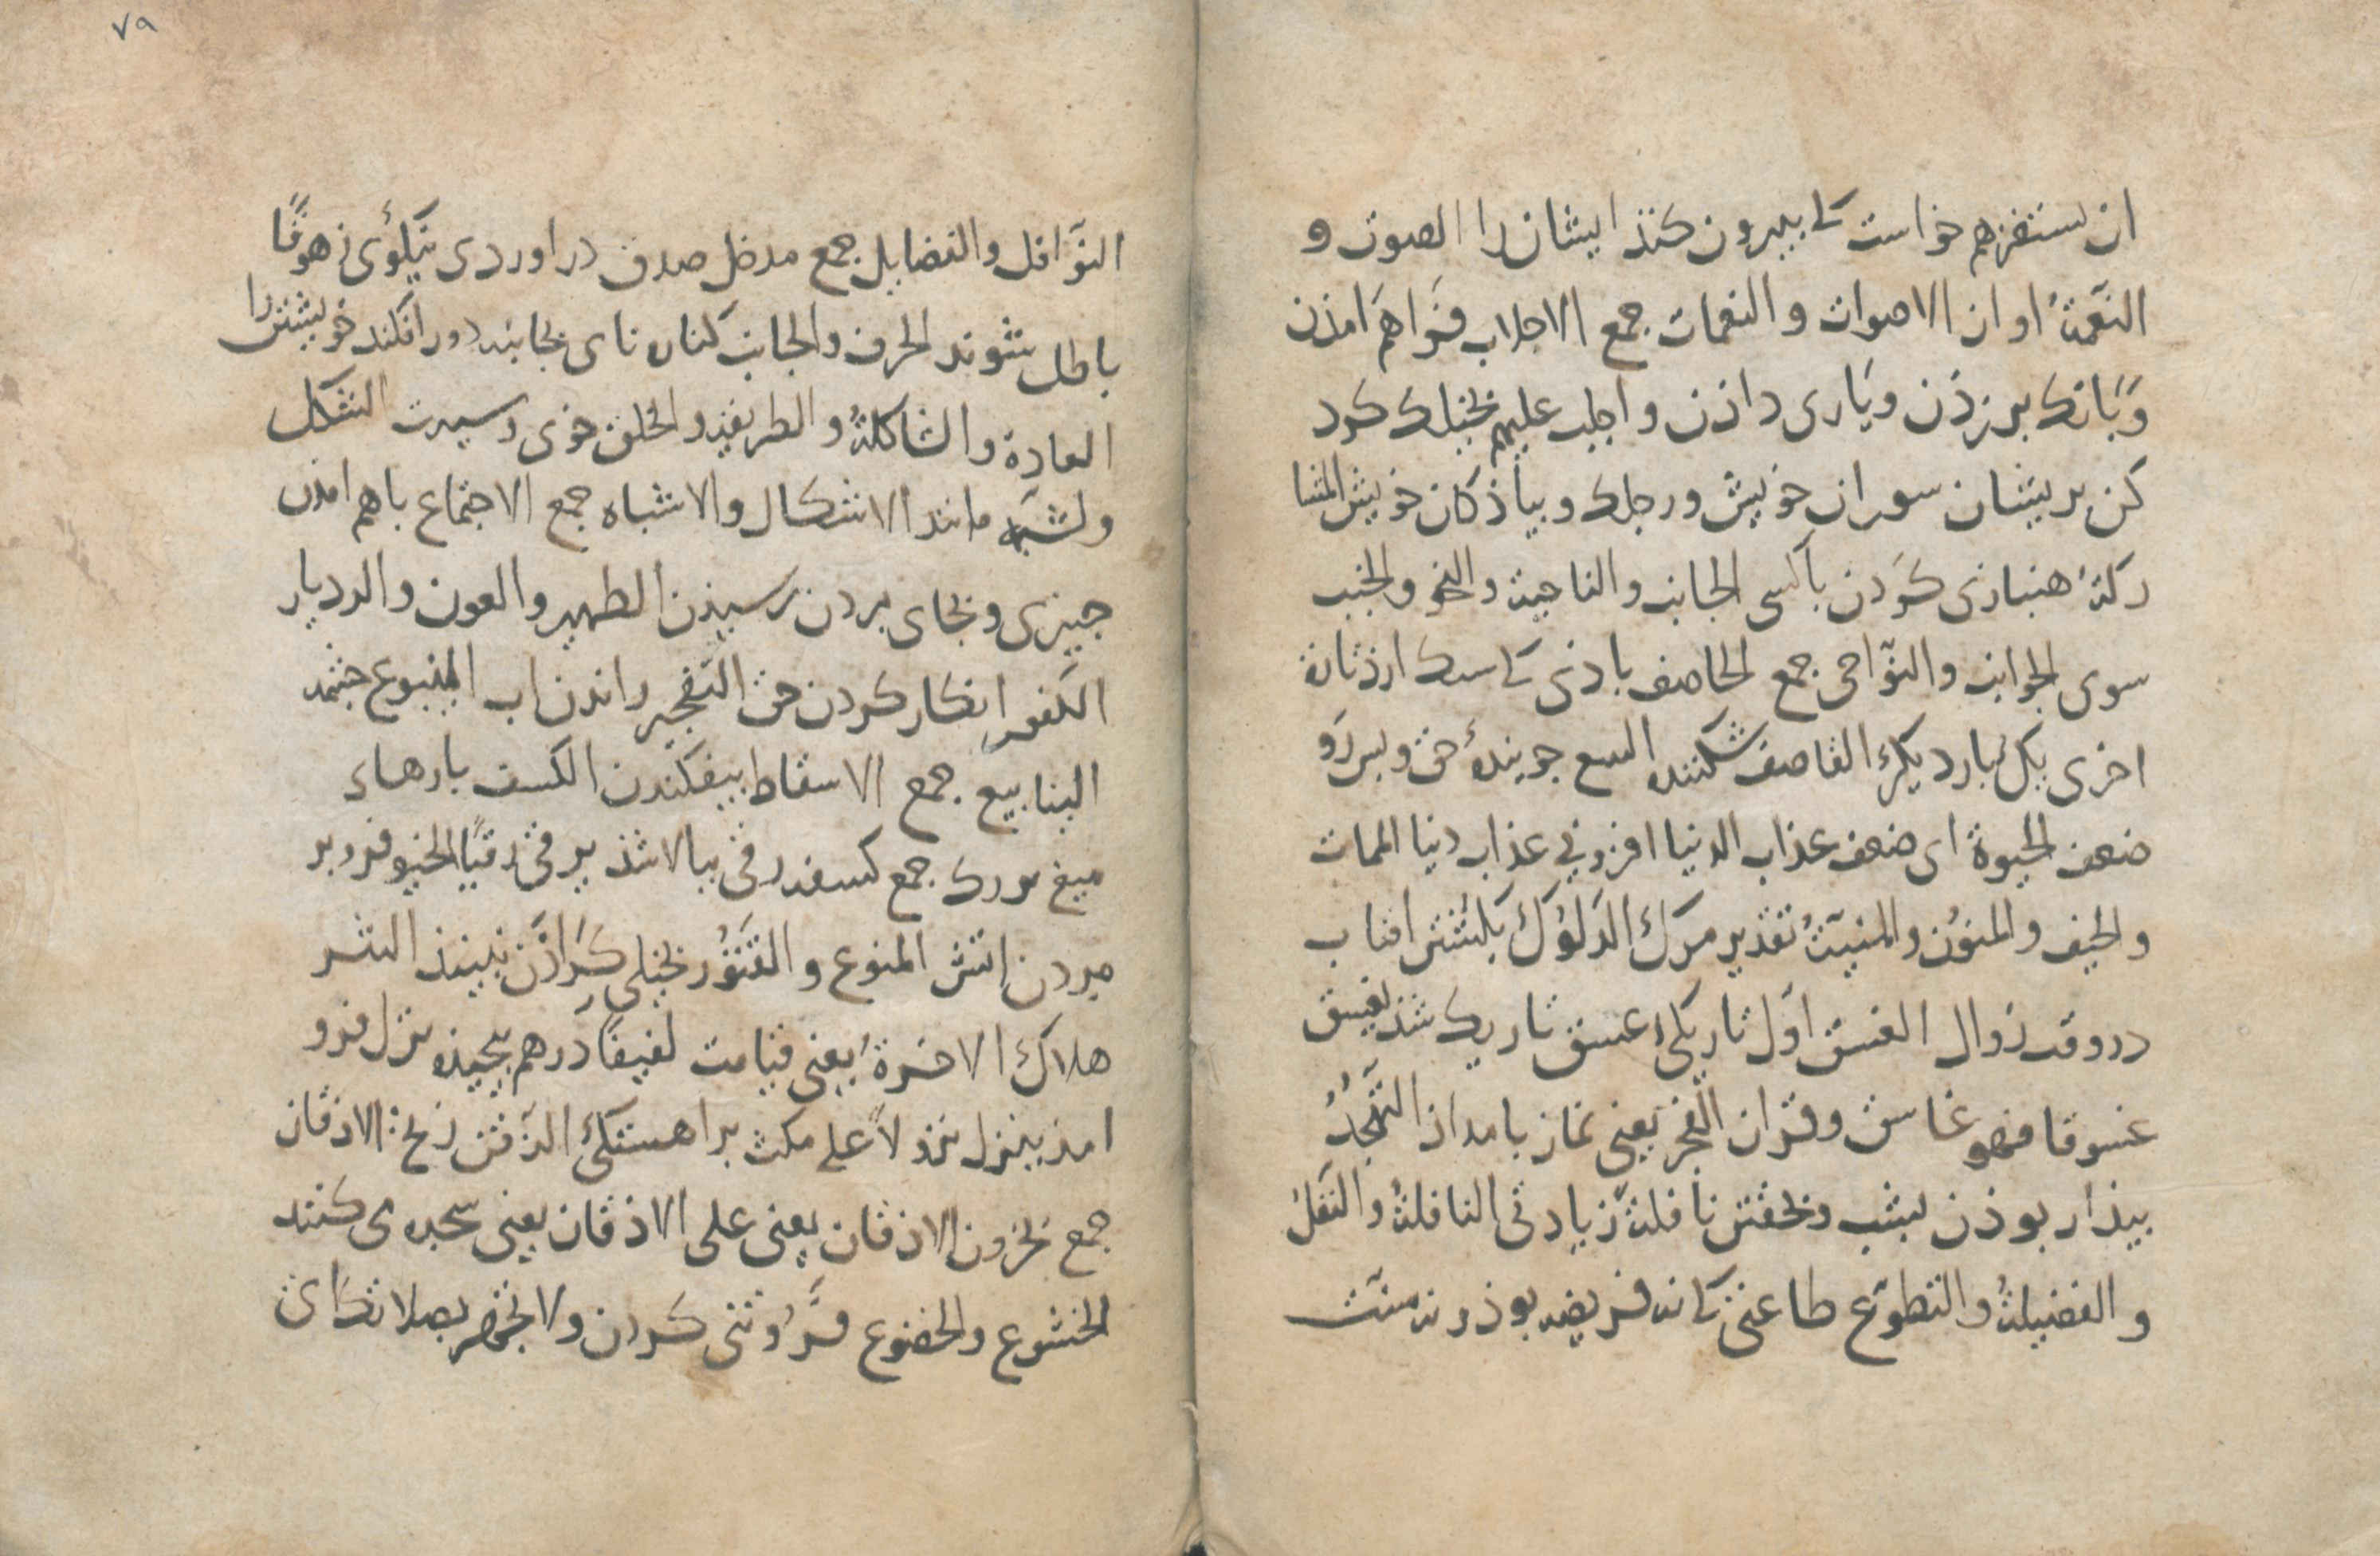 ان يستفزهم خواست كى بيرون كنذ ايشان را الصوت و
النغمة اواز الاصوات و النغمات جمع الاجلاب فراهم امذن
وبانك برزذن ويارى داذن واجلب عليهم بخيلك كرد
كن بريشان سوران خويش ورجلك وبياذكان خويش المشا
ركة هنبازى كردن باكسى الجانب والناحية والنحو والجنب
سوى الجوانب والنواحى جمع الحاصف باذى كى سنك ارذ تارة
اخرى يكبار ديكر القاصف شكننده التبيع جوينده حق وبس رو
ضعف الحيوة اى ضعف عذاب الدنيا افزونى عذاب دنيا الممات
والحيف والمنون والمنية تقدير مرك الدلوك بكشتن افتاب
دروقت زوال الغسق اول تاريكى غسق تاريك شذ يغسق
غسوقا فهو غاسق وقران الفجر يعنى نماز بامداذ التهجد
بيذار بوذن بشب وبخفتن نافلة زيادتى النافلة والنفل
و الفضيلة والتطوع طاعتى كى نه فريضه بوذ ونه سنت
٧٩
النوافل والفضايل جمع مدخل صدق دراوردى نيكوى زهوقا
باطل شوند الحرف والجانب كناره ناى بجانبه دورافكند خويشتن را
العادة والشاكلة والطريقة والخلق خوى وسيرت الشكل
والشبه مانند الاشكال والاشباه جمع الاجتماع باهم امذن
جيزى وبجاى بردن رسيذن الظهير والعون والرد يار
الكفور انكار كردن حق التفجير راندن اب الينبوع جشمه
الينابيع جمع الاسقاط بيفكندن الكسف بارهاء
ميغ جمع كسفه رقى ببالا شذ يرقى رقيا الخبو فرو
مردن اتش المنوع و القتور بخيلى نبينذ الثبر
هلاك الاخرة يعنى قيامت لفيفا درهم بيجيذه نزل فرو
امذ ينزل نزولا على مكث براهستكى الذقن زنخ الاذقان
جمع يخرون الاذقان يعنى على الاذقان يعنى سجده مى كنند
الخشوع والخضوع فروتنى كردن ولا تجهر بصلاتك اى